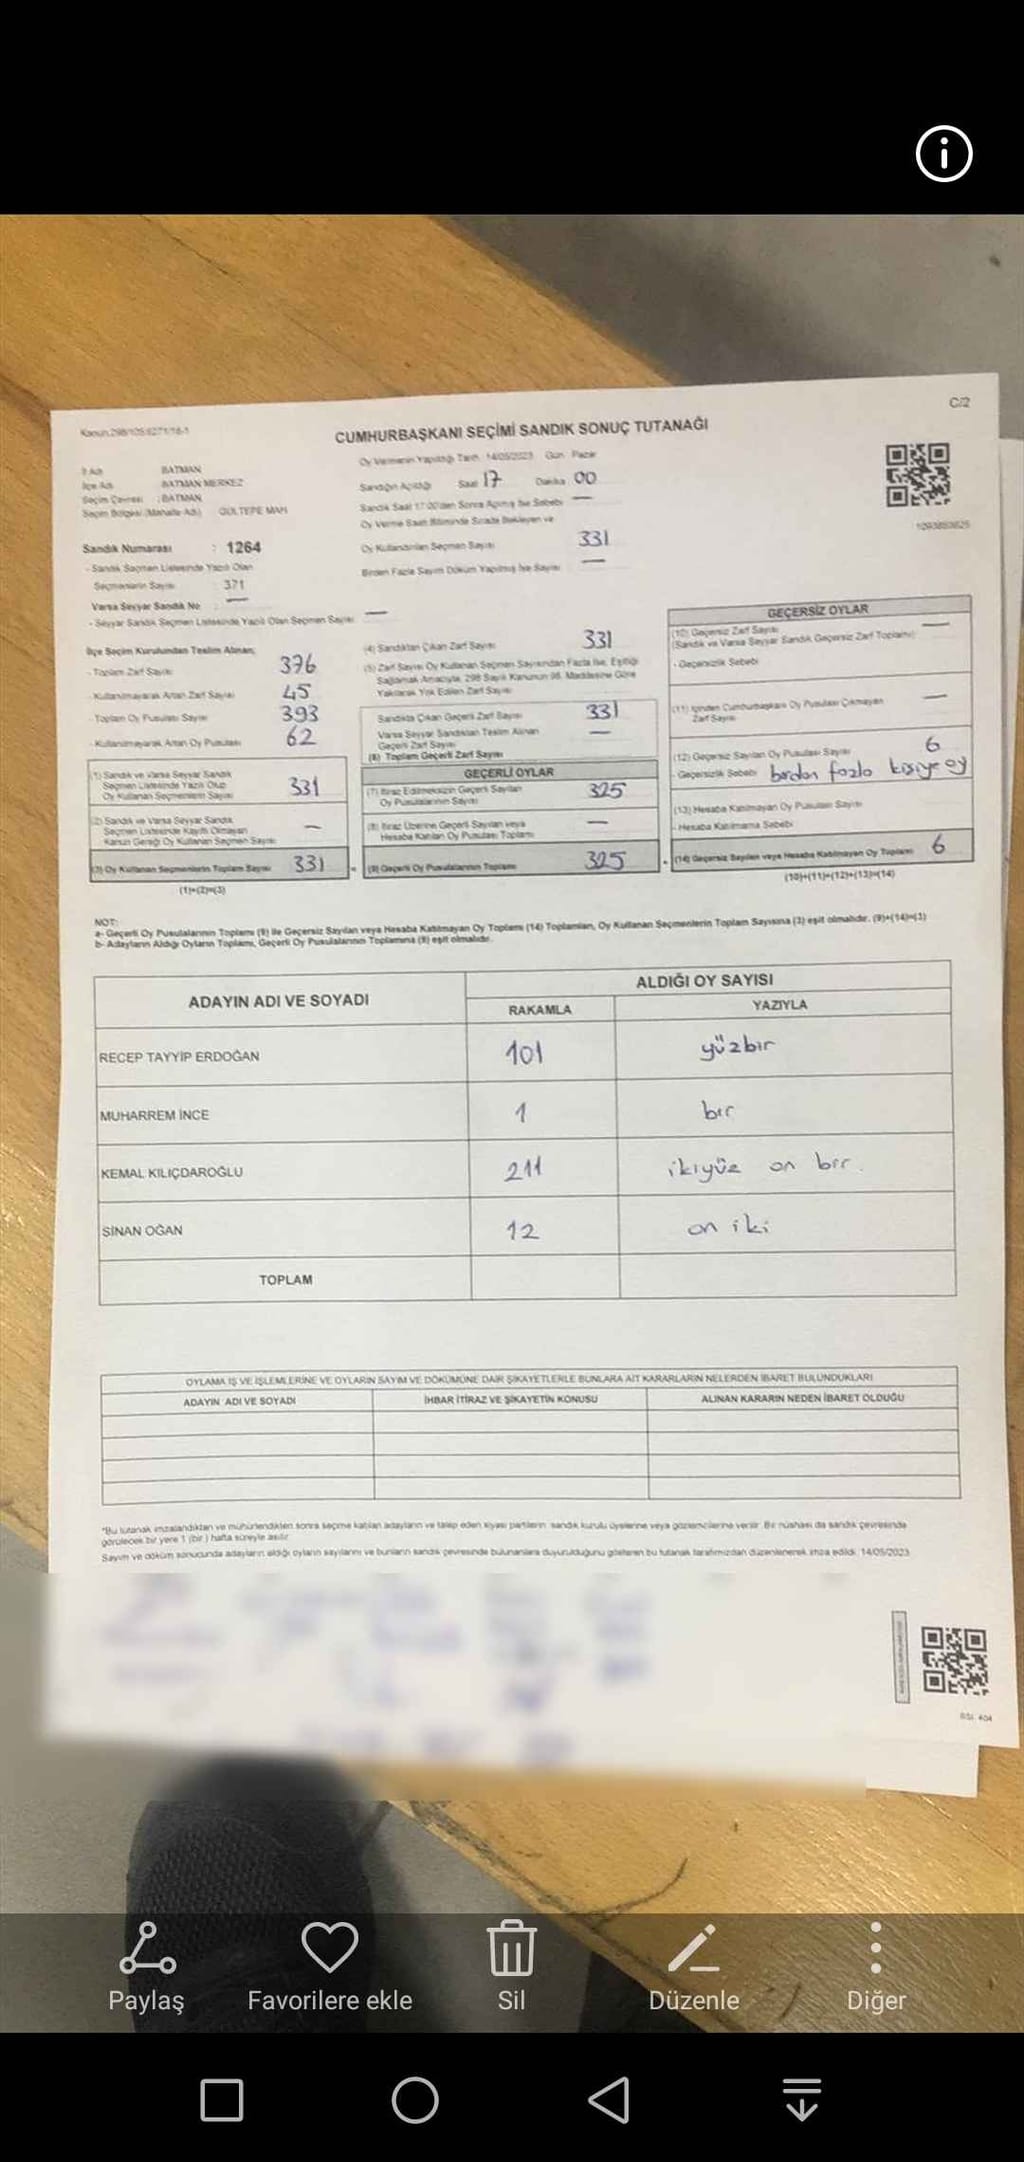 C/2
Kanun 298/105 6271/16-1
CUMHURBAŞKANI SEÇİMİ SANDIK SONUÇ TUTANAĞI
İl Adı BATMAN
İlçe Adı BATMAN MERKEZ
Seçim Çevresi : BATMAN
Seçim Bölgesi (Mahalle Adı) GÜLTEPE MAH
Oy Vermenin Yapıldığı Tarih 14/05/2023 Gün Pazar
Sandığın Açıldığı Saat 17 Dakika 00
Sandık Saat 17:00'den Sonra Açılmış İse Sebebi —
Oy Verme Saati Bitiminde Sırada Bekleyen ve
Oy Kullandırılan Seçmen Sayısı 331
Birden Fazla Sayım Döküm Yapılmış İse Sayısı —
Sandık Numarası : 1264
- Sandık Seçmen Listesinde Yazılı Olan
Seçmenlerin Sayısı 371
Varsa Seyyar Sandık No —
- Seyyar Sandık Seçmen Listesinde Yazılı Olan Seçmen Sayısı —
İlçe Seçim Kurulundan Teslim Alınan;
- Toplam Zarf Sayısı 376
- Kullanılmayarak Artan Zarf Sayısı 45
- Toplam Oy Pusulası Sayısı 393
- Kullanılmayarak Artan Oy Pusulası 62
(1) Sandık ve Varsa Seyyar Sandık
Seçmen Listesinde Yazılı Olup
Oy Kullanan Seçmenlerin Sayısı 331
(2) Sandık ve Varsa Seyyar Sandık
Seçmen Listesinde Kayıtlı Olmayan
Kanun Gereği Oy Kullanan Seçmen Sayısı —
(3) Oy Kullanan Seçmenlerin Toplam Sayısı 331
(1)+(2)=(3)
(4) Sandıktan Çıkan Zarf Sayısı 331
(5) Zarf Sayısı Oy Kullanan Seçmen Sayısından Fazla İse, Eşitliği
Sağlamak Amacıyla, 298 Sayılı Kanunun 98. Maddesine Göre
Yakılarak Yok Edilen Zarf Sayısı
Sandıkta Çıkan Geçerli Zarf Sayısı 331
Varsa Seyyar Sandıktan Teslim Alınan
Geçerli Zarf Sayısı —
(6) Toplam Geçerli Zarf Sayısı
GEÇERLİ OYLAR
(7) İtiraz Edilmeksizin Geçerli Sayılan
Oy Pusulalarının Sayısı 325
(8) İtiraz Üzerine Geçerli Sayılan veya
Hesaba Katılan Oy Pusulası Toplamı —
(9) Geçerli Oy Pusulalarının Toplamı 325
GEÇERSİZ OYLAR
(10) Geçersiz Zarf Sayısı —
(Sandık ve Varsa Seyyar Sandık Geçersiz Zarf Toplamı)
- Geçersizlik Sebebi
(11) İçinden Cumhurbaşkanı Oy Pusulası Çıkmayan
Zarf Sayısı —
(12) Geçersiz Sayılan Oy Pusulası Sayısı 6
- Geçersizlik Sebebi birden fazla kişiye oy
(13) Hesaba Katılmayan Oy Pusulası Sayısı
- Hesaba Katılmama Sebebi
(14) Geçersiz Sayılan veya Hesaba Katılmayan Oy Toplamı 6
(10)+(11)+(12)+(13)=(14)
NOT:
a- Geçerli Oy Pusulalarının Toplamı (9) ile Geçersiz Sayılan veya Hesaba Katılmayan Oy Toplamı (14) Toplamları, Oy Kullanan Seçmenlerin Toplam Sayısına (3) eşit olmalıdır. (9)+(14)=(3)
b- Adayların Aldığı Oyların Toplamı, Geçerli Oy Pusulalarının Toplamına (9) eşit olmalıdır.
ADAYIN ADI VE SOYADI
ALDIĞI OY SAYISI
RAKAMLA YAZIYLA
RECEP TAYYİP ERDOĞAN 101 yüzbir
MUHARREM İNCE 1 bir
KEMAL KILIÇDAROĞLU 211 ikiyüz on bir.
SİNAN OĞAN 12 on iki
TOPLAM
OYLAMA İŞ VE İŞLEMLERİNE VE OYLARIN SAYIM VE DÖKÜMÜNE DAİR ŞİKAYETLERLE BUNLARA AİT KARARLARIN NELERDEN İBARET BULUNDUKLARI
ADAYIN ADI VE SOYADI İHBAR İTİRAZ VE ŞİKAYETİN KONUSU ALINAN KARARIN NEDEN İBARET OLDUĞU
*Bu tutanak imzalandıktan ve mühürlendikten sonra seçime katılan adayların ve talep eden siyasi partilerin sandık kurulu üyelerine veya gözlemcilerine verilir. Bir nüshası da sandık çevresinde
görülecek bir yere 1 (bir) hafta süreyle asılır.
Sayım ve döküm sonucunda adayların aldığı oyların sayılarını ve bunların sandık çevresinde bulunanlara duyurulduğunu gösteren bu tutanak tarafımızdan düzenlenerek imza edildi. 14/05/2023
Paylaş Favorilere ekle Sil Düzenle Diğer